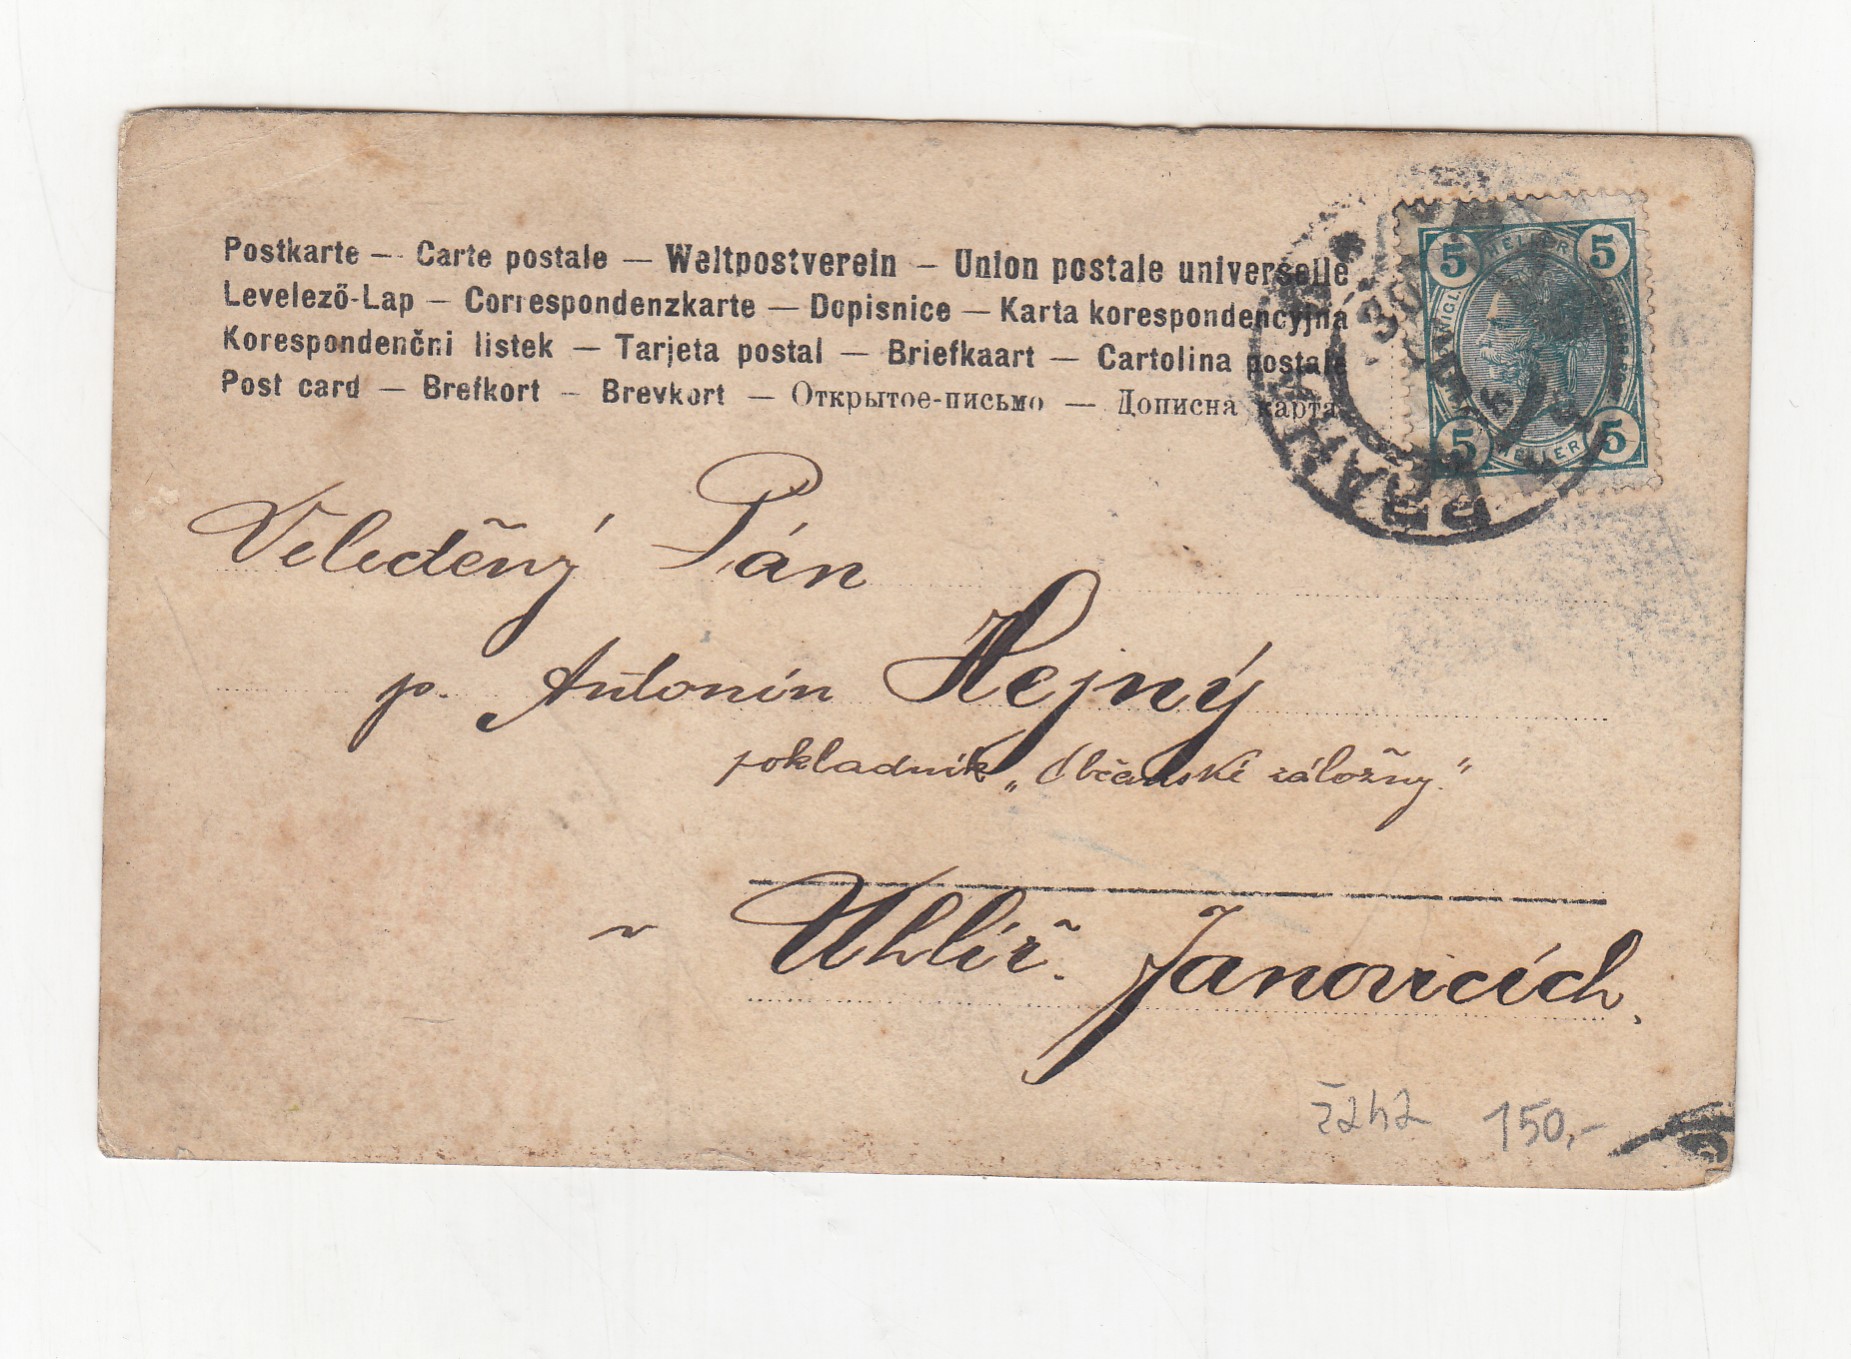 Postkarte — Carte postale — Weltpostverein — Union postale universelle
Levelező-Lap — Correspondenzkarte — Dopisnice — Karta korespondencyjna
Korespondenčni listek — Tarjeta postal — Briefkaart — Cartolina postale
Post card — Brefkort — Brevkort — Открытое-письмо — Дописна карта
5 HELLER 5
5 HELLER 5
Veleděný Pán
p. Antonín Hejný
pokladník „Občanské záložny."
v Uhlíř. Janovicích,
150,-